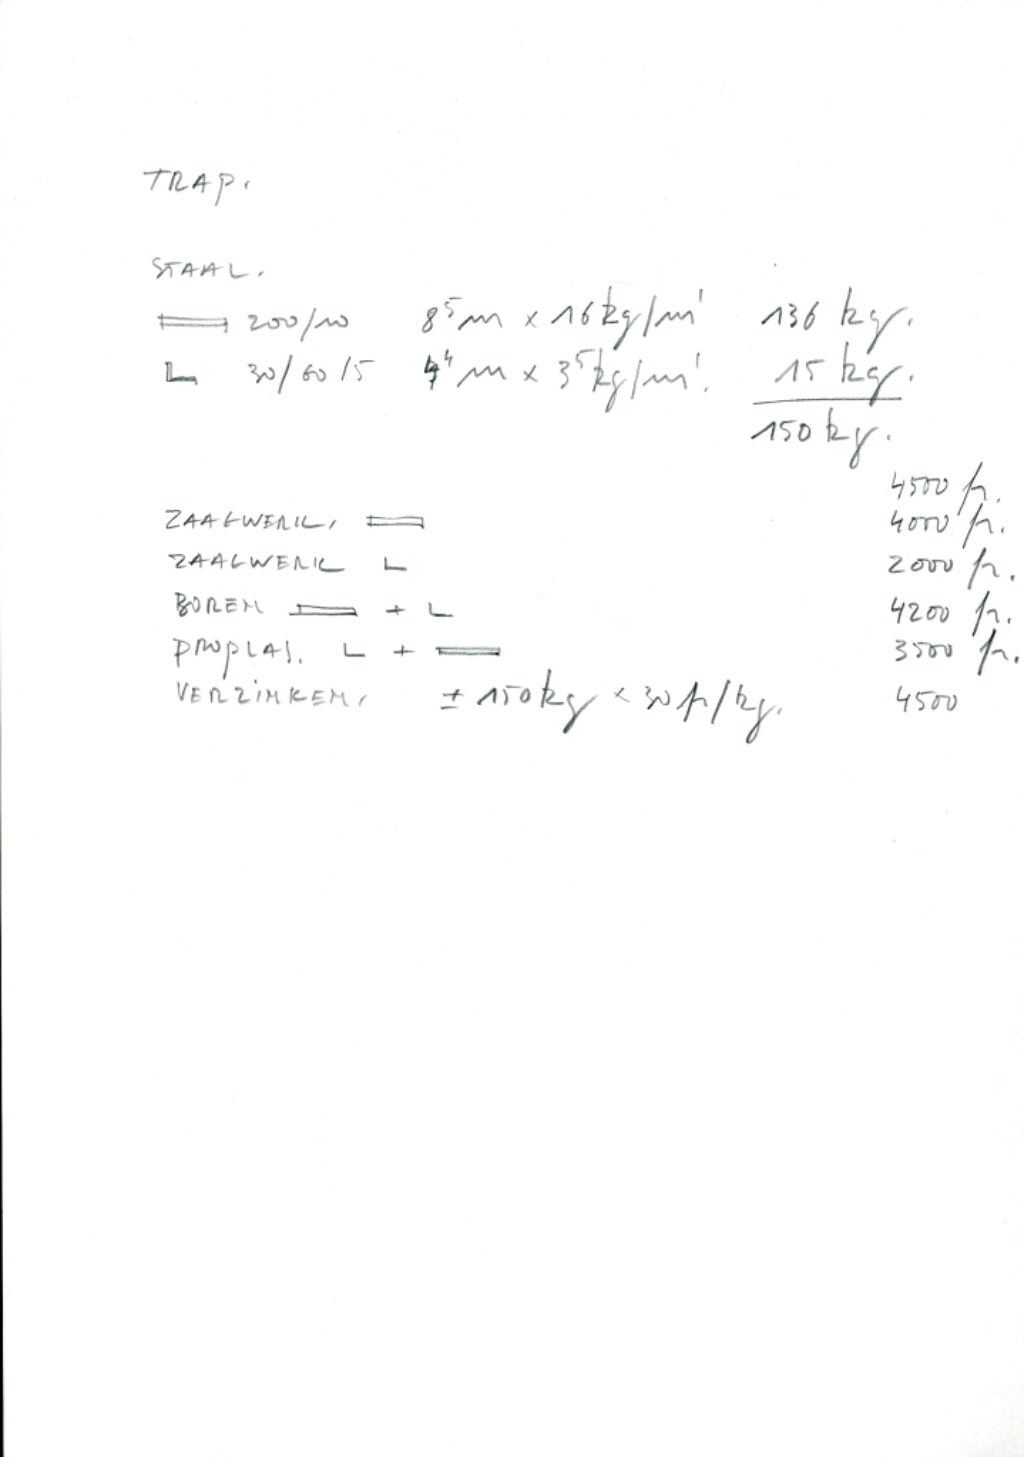 TRAP.
STAAL.
200/10 8⁵m x 16kg/m' 136 kg.
30/60/5 4⁴m x 3⁵kg/m'. 15 kg.
150 kg.
4500 fr.
ZAAGWERK. 4000 fr.
ZAAGWERK L 2000 fr.
BOREN + L 4200 fr.
L + 3500 fr.
VERZINKEN. ± 150kg x 30 fr/kg. 4500